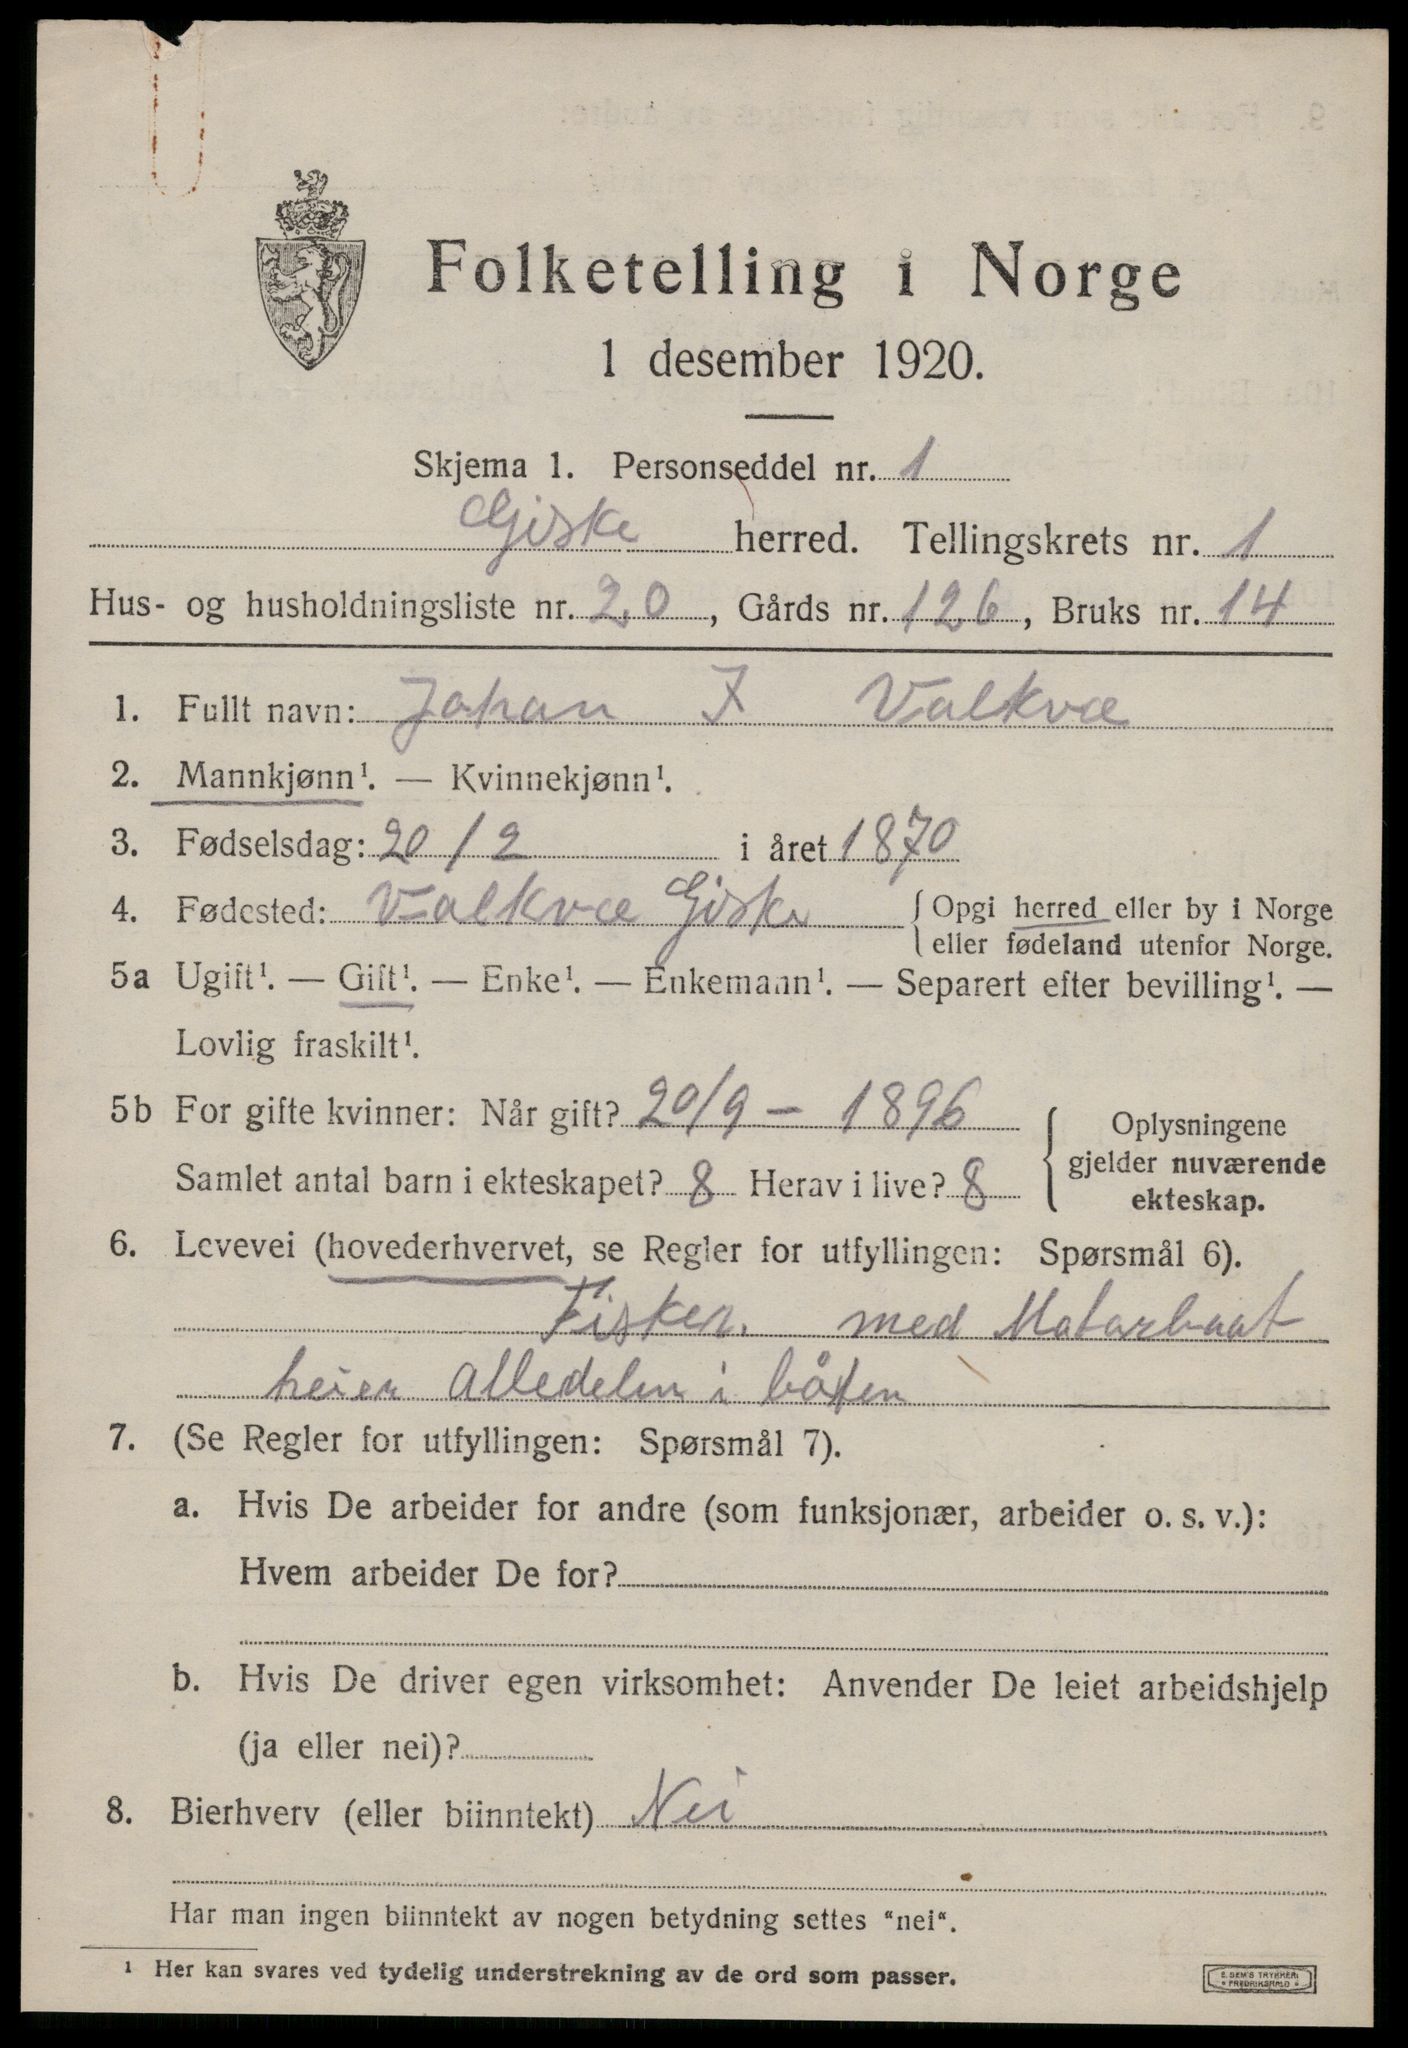 Folketelling i Norge
1 desember 1920.
Skjema 1. Personseddel nr. 1
Giske herred. Tellingskrets nr. 1
Hus- og husholdningsliste nr. 20, Gårds nr. 126, Bruks nr. 14
1. Fullt navn: Johan J Valkvæ
2. Mannkjønn¹. — Kvinnekjønn¹.
3. Fødselsdag: 20/2 i året 1870
4. Fødested: Valkvæ Giske { Opgi herred eller by i Norge
eller fødeland utenfor Norge.
5a Ugift¹. — Gift¹. — Enke¹. — Enkemann¹. — Separert efter bevilling¹. —
Lovlig fraskilt¹.
5b For gifte kvinner: Når gift? 20/9 – 1896
Samlet antal barn i ekteskapet? 8 Herav i live? 8
Oplysningene
gjelder nuværende
ekteskap.
6. Levevei (hovederhvervet, se Regler for utfyllingen: Spørsmål 6).
Fisker. med Motorbaat
heier alledelen i båten
7. (Se Regler for utfyllingen: Spørsmål 7).
a. Hvis De arbeider for andre (som funksjonær, arbeider o. s. v.):
Hvem arbeider De for?
b. Hvis De driver egen virksomhet: Anvender De leiet arbeidshjelp
(ja eller nei)?
8. Bierhverv (eller biinntekt) Nei
Har man ingen biinntekt av nogen betydning settes "nei".
¹ Her kan svares ved tydelig understrekning av de ord som passer.
E. SEM'S TRYKKERI
FREDRIKSHALD